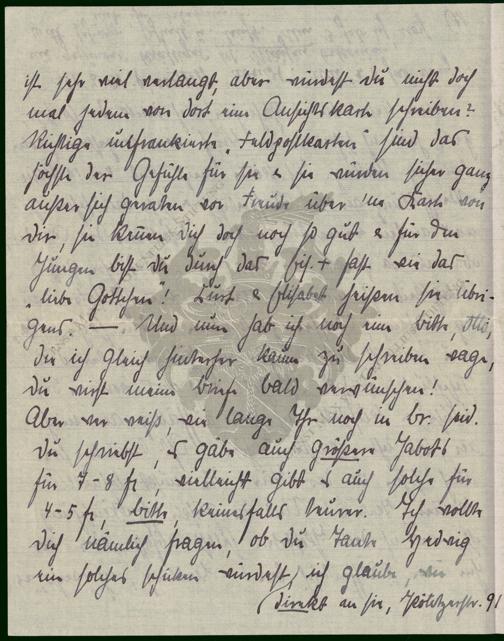 ist sehr viel verlangt, aber würdest du nicht doch
mal jedem von dort eine Ansichtskarte schreiben?
Richtige unfrankierte „Feldpostkarten" sind das
Höchste der Gefühle für sie & sie würden sicher ganz
außer sich geraten vor Freude über 'ne Karte von
Dir, sie kennen Dich doch noch so gut & für den
Jungen bist du durch das Eis. + fast wie das
„liebe Gottchen"! Kurt & Elisabet heißen sie übri-
gens. — Und nun hab ich noch eine bitte, Otto,
die ich gleich hinterher kaum zu schreiben wage,
du wirst meine briefe bald verwünschen!
Aber wer weiß, wie lange Ihr noch in br. seid.
Du schriebst, es gäbe auch größere Jabots
für 7-8 fr, vielleicht gibt es auch solche für
4-5 fr, bitte, keinesfalls teurer. Ich wollte
dich nämlich fragen, ob du Tante Hedwig
ein solches schicken würdest, ich glaube,
(direkt an sie, 91